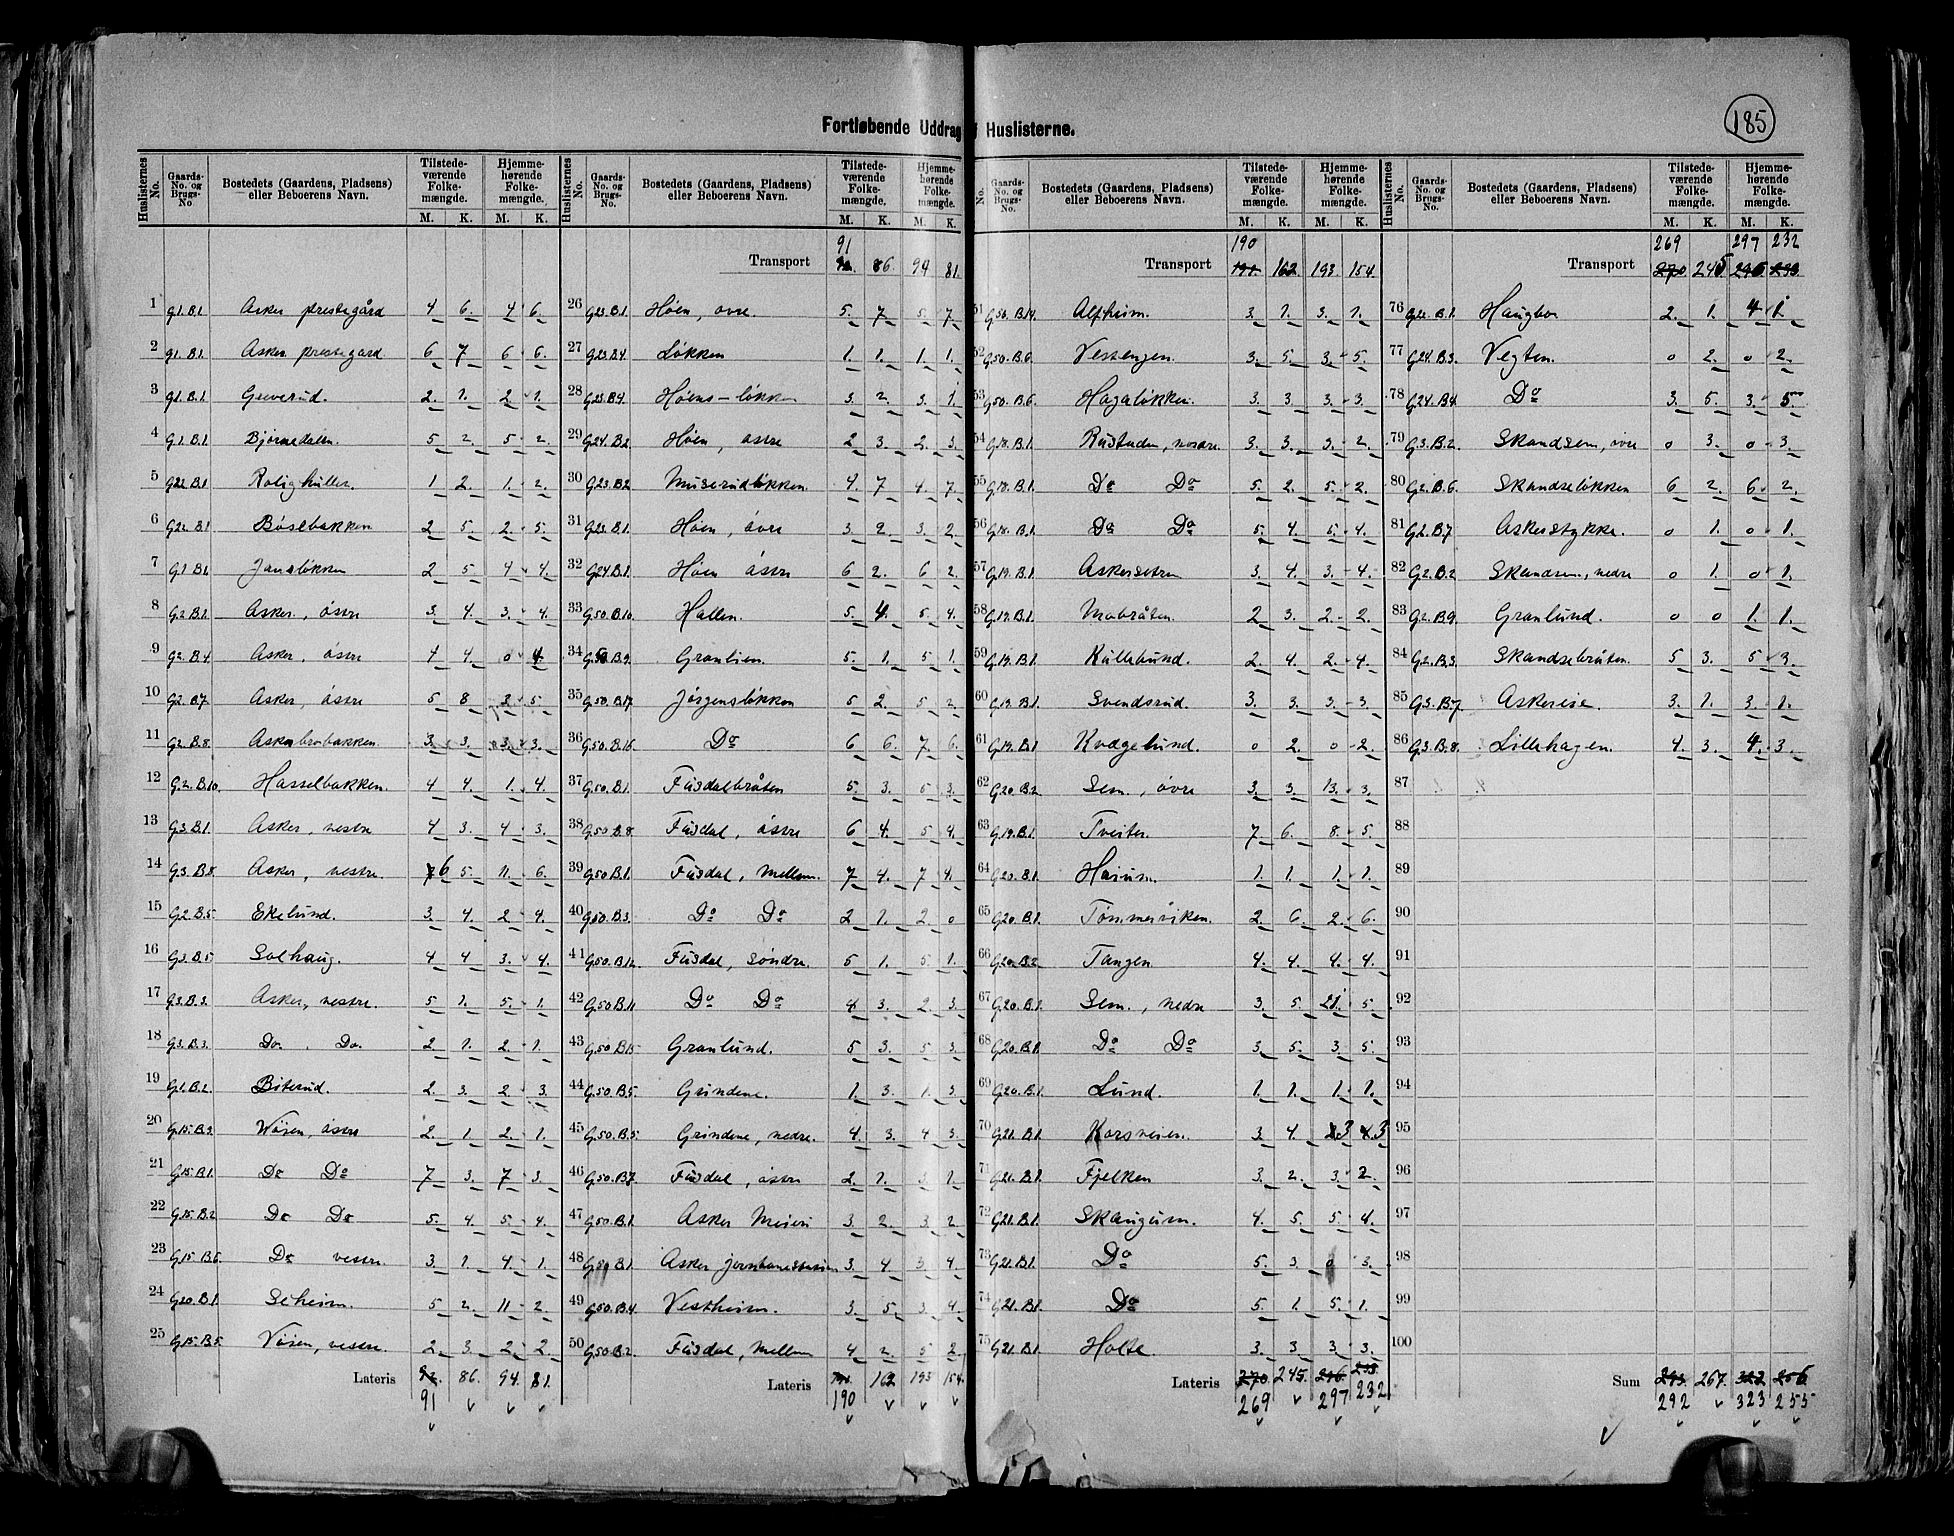 185
Fortløbende Uddrag f Huslisterne.
Huslisternes No. Gaards-No. og Brugs-No Bostedets (Gaardens, Pladsens) eller Beboerens Navn. Tilstedeværende Folkemængde. M. K. Hjemmehørende Folkemængde. M. K.
1 G1.B1. Asker prestegård 4 6. 4 6.
2 G1.B1. Asker prestegård 6 7 6 6.
3 G1.B.1. Greverud. 2. 1. 2 1.
4 G.1.B.1. Bjørnedalen. 5 2. 5 2.
5 G22 B.1 Rolighullet. 1 2. 1. 2.
6 G22.B.1 Bösebakken 2 5. 2. 5.
7 G.1 B.1. Jansløkken 2 5. 4 4.
8 G2.B.1. Asker, östre 3. 4. 3. 4.
9 G2.B.4. Asker, östre 4 4. 0 4.
10 G2.B.7. Asker, östre 5 8 3. 5.
11 G2.B.8. Askerbrobakken. 3. 3. 3. 3.
12 G.2.B.10. Hasselbakken. 4 4. 1. 4.
13 G.3.B.1. Asker, vestre 4 3. 4 3.
14 G.3.B.8. Asker, vestre. 6 5. 11. 6.
15 G2.B.5. Ekelund. 3. 4. 2 4.
16 G.3.B.5. Solhaug. 4 4 3. 4.
17 G3.B.3. Asker, vestre. 5 1. 5. 1.
18 G3.B.3. Do. , Do. 2 1. 2 1.
19 G.1.B.2. Böterud. 2. 3. 2. 3.
20 G.15.B.3. Vöjen, östre 2. 1. 2. 1.
21 G.15.B.1. Do Do 7 3. 7 3.
22 G.15.B.2 Do Do 5. 4. 5. 4.
23 G.15.B.6. Do vestre. 3. 1. 4. 1.
24 G20.B.1. Seheim. 5 2. 11 2.
25 G.15.B.5. Vöjen, vestre. 2 3. 2 2.
Lateris 92. 86. 94. 81.
91
Huslisternes No. Gaards-No. og Brugs-No. Bostedets (Gaardens, Pladsens) eller Beboerens Navn. Tilstedeværende Folkemængde. M. K. Hjemmehørende Folkemængde. M. K.
91
Transport 92. 86. 94 81.
26 G23.B.1. Höen, övre. 5. 7. 5. 7
27 G23.B.4. Løkken 1. 1. 1. 1.
28 G23.B.4. Höens-løkken 3. 2. 3. 1.
29 G24.B.2. Höen, östre 2 3. 2. 3.
30 G.23.B.2 Muserudløkken. 4. 7 4. 7.
31 G23.B.1. Höen, övre 3. 2. 3. 2.
32 G24.B.1. Höen östre 6 2. 6 2.
33 G.50.B.10. Hallen. 5. 4. 5. 4.
34 G.50.B.9. Granlien. 5. 1. 5 1.
35 G.50.B.17. Jörgensløkken 5 2. 5 2.
36 G.50.B.16. Do 6 6. 7. 6.
37 G.50.B.1. Füsdalbråten 5. 3. 5 3.
38 G.50 B.8. Füsdal, östre 6 4. 5 4.
39 G.50 B.1. Füsdal, mellem. 7 4. 7 4.
40 G.50.B.3. Do Do 2 1. 2. 0
41 G.50.B.12. Füsdal, söndre. 5 1. 5. 1.
42 G.50.B.11. Do Do 4 3. 2. 3.
43 G.50 B.15. Granlund. 5 3. 5 3.
44 G.50.B.5. Grindene. 1. 3. 1. 3.
45 G.50.B.5. Grindene, nedre. 4. 3. 4 3.
46 G.50.B.7. Füsdal, östre 2. 1. 3. 1.
47 G.50.B.1. Asker Meieri 3. 2. 3. 2
48 G.50.B.1. Asker jernbanestasion 3. 4. 3. 4.
49 G.50.B.4. Vestheim. 3. 5. 3. 4
50 G.50.B.2. Füsdal, Mellem 4 2. 5 2.
Lateris 191. 162 193 154
190
No. Gaards-No. og Brugs-No. Bostedets (Gaardens, Pladsens) eller Beboerens Navn. Tilstedeværende Folkemængde. M. K. Hjemmehørende Folkemængde. M. K.
190
Transport 191. 162. 193. 154.
51 G.50.B.14. Alfheim. 3. 1. 3. 1.
52 G.50.B.6. Vestengen. 3. 5. 3. 5.
53 G.50.B.6. Hagaløkken. 3. 3 3. 3.
54 G.18.B.1. Rustaden, nordre. 3. 3. 3. 2.
55 G.18.B.1. Do Do 5. 2. 5. 2.
56 G.18.B.1. Do Do 5. 4. 5. 4.
57 G.19.B.1. Askersetra 3. 4. 3. 4.
58 G.19.B.1. Mobråten. 2 3. 2. 2.
59 G.19.B.1. Küllebund. 2 4. 2. 4.
60 G.19.B.1. Svendsrud 3. 3. 3. 3.
61 G.19.B.1 Kvægelund. 0 2. 0 2.
62 G.20.B.2 Sem, övre 3. 3. 13. 3.
63 G.19.B.1. Tveiter. 7 6. 8. 5.
64 G.20.B.1. Harum. 1. 1. 1. 1.
65 G20.B.1. Tömmerviken. 2. 6. 2. 6.
66 G20.B.2. Tangen. 4. 4. 4. 4.
67 G20.B.1. Sem, nedre 3. 5. 21. 5.
68 G20.B.1. Do Do 3. 5. 3. 5.
69 G20.B.1. Lund. 1. 1. 1. 1.
70 G.21.B.1. Korsveien. 3. 4. 3 3
71 G21.B.1. Fjelken 3. 2. 3. 2.
72 G21.B.1. Skaugum. 4. 5. 5. 4.
73 G21.B.1. Do 5. 3. 0 3.
74 G.21.B.1. Do 5. 1. 5. 1.
75 G21.B.1. Holte. 3. 3. 3. 3.
Lateris 270 245. 296 233
269 297 232
Huslisternes No. Gaards-No. og Brugs-No. Bostedets (Gaardens, Pladsens) eller Beboerens Navn. Tilstedeværende Folkemængde. M. K. Hjemmehørende Folkemængde. M. K.
269 297 232
Transport 270 245 296 233
76 G22.B.1. Haugbo 2. 1. 4. 1.
77 G24.B.3. Vegten. 0 2. 0 2.
78 G24.B.4. Do 3. 5. 3. 5
79 G.3.B.2. Skandsem, övre 0 3. 0 3.
80 G.2.B.6. Skandseløkken 6 2. 6 2.
81 G.2.B.7. Askerstykke. 0 1. 0 1.
82 G.2.B.2 Skandsem, nedre 0 1. 0 1.
83 G.2.B.9. Granlund. 0 0 1. 1.
84 G.2.B.3. Skandsebråten. 5 3. 5 3.
85 G.3.B.7. Askereie. 3. 1. 3. 1.
86 G.3.B.8. Lillehagen. 4. 3. 4. 3.
87
88
89
90
91
92
93
94
95
96
97
98
99
100
Sum 293. 267. 322 256
292 323 255